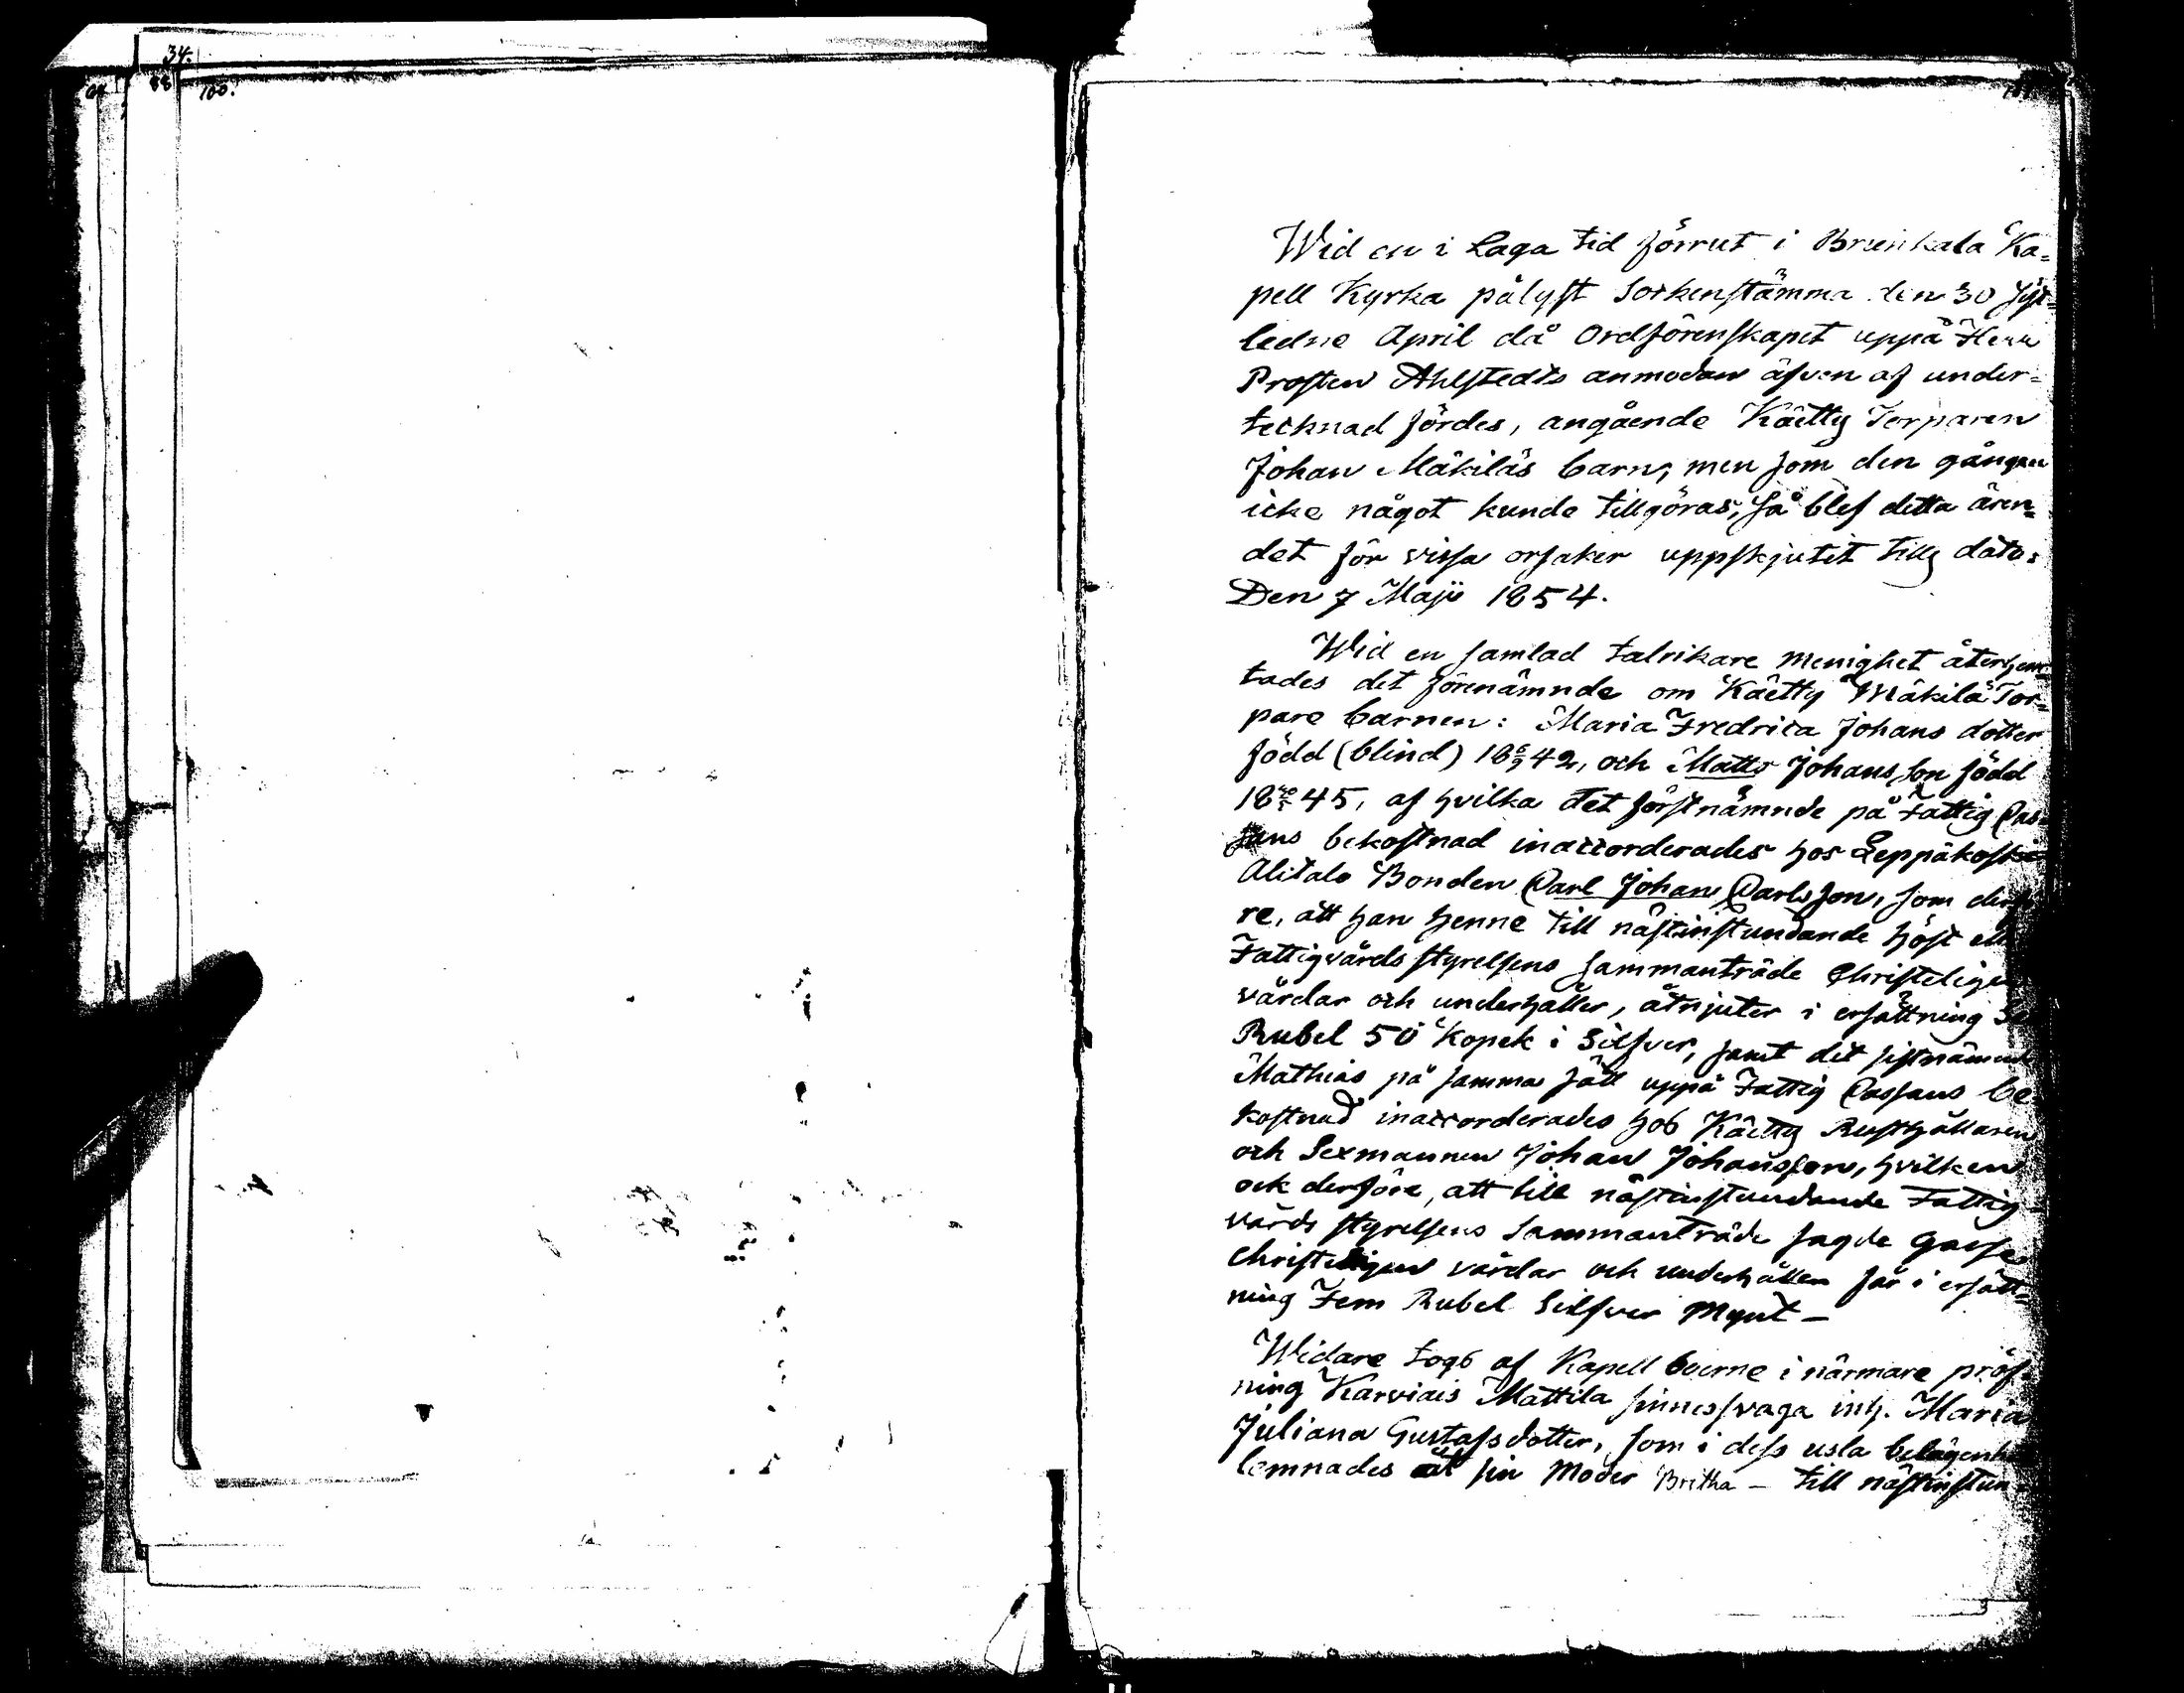 34.
88
100.
Wid en i Laga tid förrut i Brunkala Ka=
pell Kyrka pålyst Sockenstämma den 30 sist=
ledne April då Ordförenskapet uppå Herr
Prosten Ahlstedts anmodan äfven af under=
tecknad fördes, angående Käetty Torparen
Johan Mäkiläs barn, men som den gången
icke något kunde tillgöras, så blef detta ären=
det för vissa orsaker uppskjutit till dato:
Den 7 Maji 1854.
Wid en samlad talrikare menighet återhem=
tades det förenämnde om Käetty Mäkilä Tor=
pare barnen: Maria Fredrica Johans dotter
född (blind) 18 42, och Matts Johansson född
18 45, af hvilka det förstnämnde på Fattig Cas=
sans bekostnad inaccorderades hos Leppäkoski
Alitalo Bonden Carl Johan Carlsson, som derfö
re, att han henne till nästinstundande höst
Fattigvårds styrelsens sammanträde Christeligen
vårdar och underhåller, åtnjuter i ersättning
Rubel 50 Kopek i Silfver, samt det sistnämnde
Mathias på samma sätt uppå Fattig Cassans be
kostnad inaccorderades hos Käetty Rusthållaren
och Sexmannen Johan Johansson, hvilken
ock derföre, att till nästinstundande Fattig=
vårds styrelsens Sammanträde sagde Gosse
Christeligen vårdar och underhåller får i ersätt=
ning Fem Rubel Silfver Mynt —
Widare togs af Kapell boerne i närmare pröf=
ning Karviais Mattila sinnessvaga inh. Maria
Juliana Gustafsdotter, som i dess usla belägenhe
lemnades åt sin Moder Britha — till nästinstun=